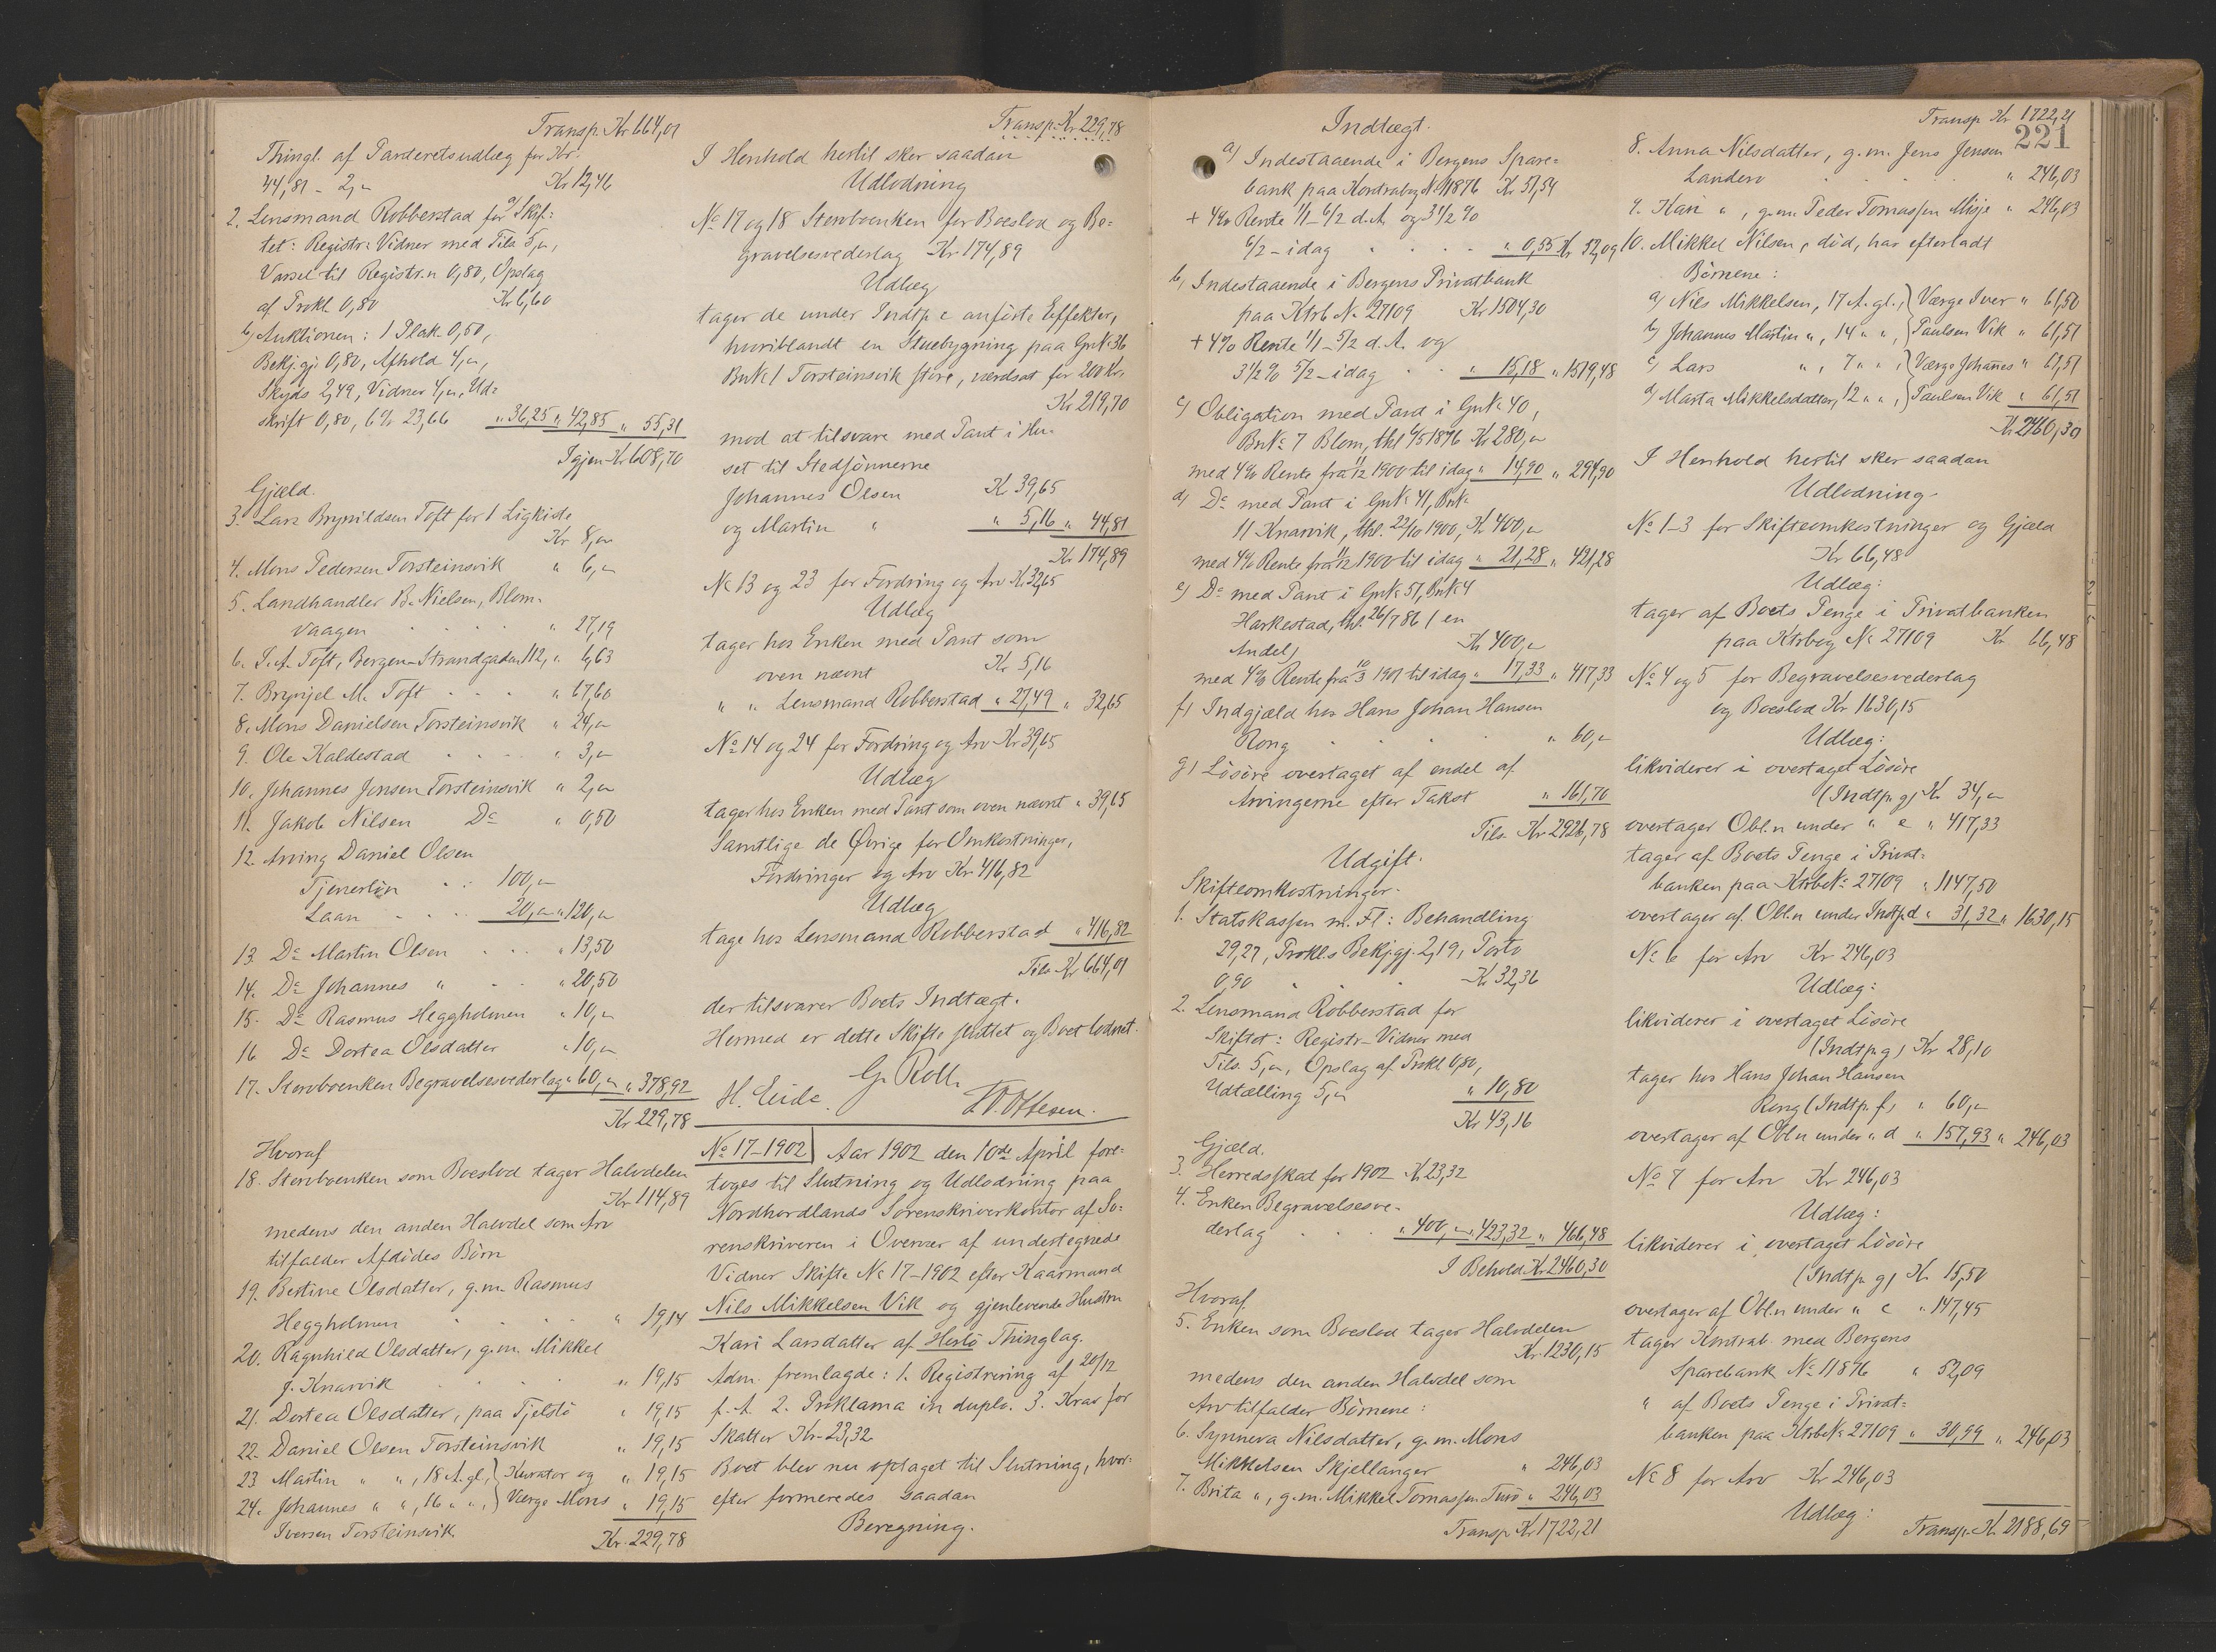 Transp. Kr 664,01
Thingl. af Panderetsudlæg for Kr.
44,81 - 2," Kr 12,46
2. Lensmand Robberstad for a) Skif-
tet: Registr. Vidner med Tils. 5,",
Varsel til Registr.n 0,80, Opslag
af Prokl. 0,80 Kr 6,60
b) Auktionen: 1 Plak. 0,50,
Bekj.gj. 0,80, Afhold. 4,",
Skyds 2,49, Vidner 4,", Ud-
skrift 0,80, 6% 23,66 " 36,25 " 42,85 " 55,31
Igjen Kr 608,70
Gjæld.
3. Lars Brynildsen Toft for 1 Ligkiste
Kr 8,"
4. Mons Pedersen Torsteinsvik " 6,"
5. Landhandler B. Nielsen, Blom-
vaagen " 27,19
6. J. A. Toft, Bergen Strandgaden 112, " 6,63
7. Brynjel M. Toft " 67,60
8. Mons Danielsen Torsteinsvik " 24,"
9. Ole Kaldestad " 3,"
10. Johannes Jonsen Torsteinsvik " 2,"
11. Jakob Nilsen Do " 0,50
12. Arving Daniel Olsen
Tjenerløn 100,"
Laan 20," " 120,"
13. Do Martin Olsen " 13,50
14. Do Johannes " " 20,50
15. Do Rasmus Heggholmen " 10,"
16 Do Dortea Olsdatter " 10,"
17. Stervboenken Begravelsesvederlag " 60," " 378,92
Kr 229,78
Hvoraf
18. Stervboenken som Boeslod tager Halvdelen
Kr 114,89
medens den anden Halvdel som Arv
tilfalder Afdødes Børn
19. Bertine Olsdatter, g.m. Rasmus
Heggholmen " 19,14
20. Ragnhild Olsdatter, g.m. Mikkel
J. Knarvik " 19,15
21. Dortea Olsdatter, paa Tjelstø " 19,15
22. Daniel Olsen Torsteinsvik " 19,15
23 Martin " ", 18 A. gl., } Kurator og " 19,15
24. Johannes " ", 16 " ", } Værge Mons " 19,15
Iversen Torsteinsvik
Kr. 229,78
Transp. Kr 229,78
I Henhold hertil sker saadan
Udlodning
No 17 og 18 Stervboenken for Boeslod og Be-
gravelsesvederlag Kr 174,89
Udlæg
tager de under Indtp. c anførte Effekter,
hvoriblandt en Stuebygning paa Gn.No 36
Bn.No 1 Torsteinsvik store, værdsat for 200 Kr,
Kr 219,70
mod at tilsvare med Pant i Hu-
set til Stedsønnerne
Johannes Olsen Kr 39,65
og Martin " " 5,16 " 44,81
Kr 174,89
No 13 og 23 for Fordring og Arv Kr 32,65
Udlæg
tager hos Enken med Pant som
oven nævnt Kr 5,16
" " Lensmand Robberstad " 27,49 " 32,65
No 14 og 24 for Fordring og Arv Kr 39,65
Udlæg
tager hos Enken med Pant som oven nævnt " 39,65
Samtlige de Øvrige for Omkostninger,
Fordringer og Arv Kr 416,82
Udlæg
tage hos Lensmand Robberstad " 416,82
Tils. Kr 664,01
der tilsvarer Boets Indtægt.
Hermed er dette Skifte sluttet og Boet lodnet.
G. Roll.
H. Eide. Ottesen.
No 17-1902 Aar 1902 den 10de April fore-
toges til Slutning og Udlodning paa
Nordhordlands Sorenskriverkontor af So-
renskriveren i Overvær af undertegnede
Vidner Skifte No 17-1902 efter Kaarmand
Nils Mikkelsen Vik og gjenlevende Hustru
Kari Larsdatter af Herlø Thinglag.
Adm. fremlagde: 1. Registrering af 20/12
f. A. 2. Proklama in duplo. 3. Krav for
Skatter Kr. 23,32
Boet blev nu optaget til Slutning, hvor-
efter formeredes saadan
Beregning.
Indtægt.
a) Indestaaende i Bergens Spare-
bank paa Kontrabog No 11876 Kr 51,54
+ 4% Rente 1/1 - 6/2 d. A. og 3 1/2 %
6/2 - idag " 0,55 Kr 52,09
b) Indestaaende i Bergens Privatbank
paa Ktrb. No 27109 Kr 1504,30
+ 4% Rente 1/1 - 5/2 d. A. og
3 1/2 % 5/2 - idag " 15,18 " 1519,48
c) Obligation med Pant i Gn.No 40,
Bn.No 7 Blom, thl. 6/5 1896 Kr 280,"
med 4% Rente fra 11/12 1900 til idag " 14,90 " 294,90
d) Do med Pant i Gn.No 41, Bn.No
11 Knarvik, thl. 22/10 1900, Kr 400,"
med 4% Rente fra 11/12 1900 til idag " 21,28 " 421,28
e) Do med Pant i Gn.No 51, Bn.No 4
Harkestad, thl. 26/7 86 (en
Andel) Kr 400,"
med 4% Rente fra 10/3 1901 til idag " 17,33 " 417,33
f) Indgjæld hos Hans Johan Hansen
Rong " 60,"
g) Løsøre overtaget af endel af
Arvingerne efter Takst " 161,70
Tils. Kr 2926,78
Udgift.
Skifteomkostninger.
1. Statskassen m. Fl: Behandling
29,27, Prokl.s Bekj.gj. 2,19, Porto
0,90 Kr 32,36
2. Lensmand Robberstad for
Skiftet: Registr. Vidner med
Tils. 5,", Opslag af Prokl 0,80,
Udtælling 5," " 10,80
Kr 43,16
Gjæld.
3. Herredsskat for 1902 Kr 23,32
4. Enken Begravelsesve-
derlag " 400," " 423,32 " 466,48
I Behold Kr 2460,30
Hvoraf
5. Enken som Boeslod tager Halvdelen
Kr. 1230,15
medens den anden Halvdel som
Arv tilfalder Børnene:
6. Synneva Nilsdatter, g.m. Mons
Mikkelsen Skjellanger " 246,03
7. Brita ", g.m. Mikkel Tomassen Turø " 246,03
Transp. Kr 1722,21
Transp. Kr 1722,21
221
8. Anna Nilsdatter, g.m. Jens Jensen
Landero " 246,03
9. Kari ", g.m. Peder Tomassen Misje " 246,03
10. Mikkel Nilsen, død, har efterladt
Børnene:
a) Nils Mikkelsen, 17 A. gl., } Værge Iver " 61,50
b) Johannes Martin ", 14 " ", } Paulsen Vik " 61,51
c) Lars " ", 7 " ", } Værge Johannes " 61,51
d) Marta Mikkelsdatter, 12 " ", } Paulsen Vik " 61,51
Kr 2460,30
I Henhold hertil sker saadan
Udlodning
No 1-3 for Skifteomkostninger og Gjæld
Kr 66,48
Udlæg:
tager af Boets Penge i Privatbanken
paa Ktrbog No 27109 Kr 66,48
No 4 og 5 for Begravelsesvederlag
og Boeslod Kr 1630,15
Udlæg:
likviderer i overtaget Løsøre
(Indtp. g) Kr 34,"
overtager Obl.n under " e " 417,33
tager af Boets Penge i Privat-
banken paa Ktrb.No 27109 " 1147,50
overtager af Obl.n under Indtp. d " 31,32 " 1630,15
No 6 for Arv Kr 246,03
Udlæg:
likviderer i overtaget Løsøre
(Indtp. g) Kr 28,10
tager hos Hans Johan Hansen
Rong (Indtp. f) " 60,"
overtager af Obl.n under " d " 157,93 " 246,03
No 7 for Arv Kr 246,03
Udlæg:
likviderer i overtaget Løsøre
(Indtp. g) Kr. 15,50
overtager af Obl.n under " c " 147,45
tager Kontrab. med Bergens
Sparebank No 11876 " 52,09
" af Boets Penge i Privat-
banken paa Ktrb.No 27109 " 30,99 " 246,03
No 8 for Arv Kr 246,03
Udlæg:
Transp. Kr. 2188,69